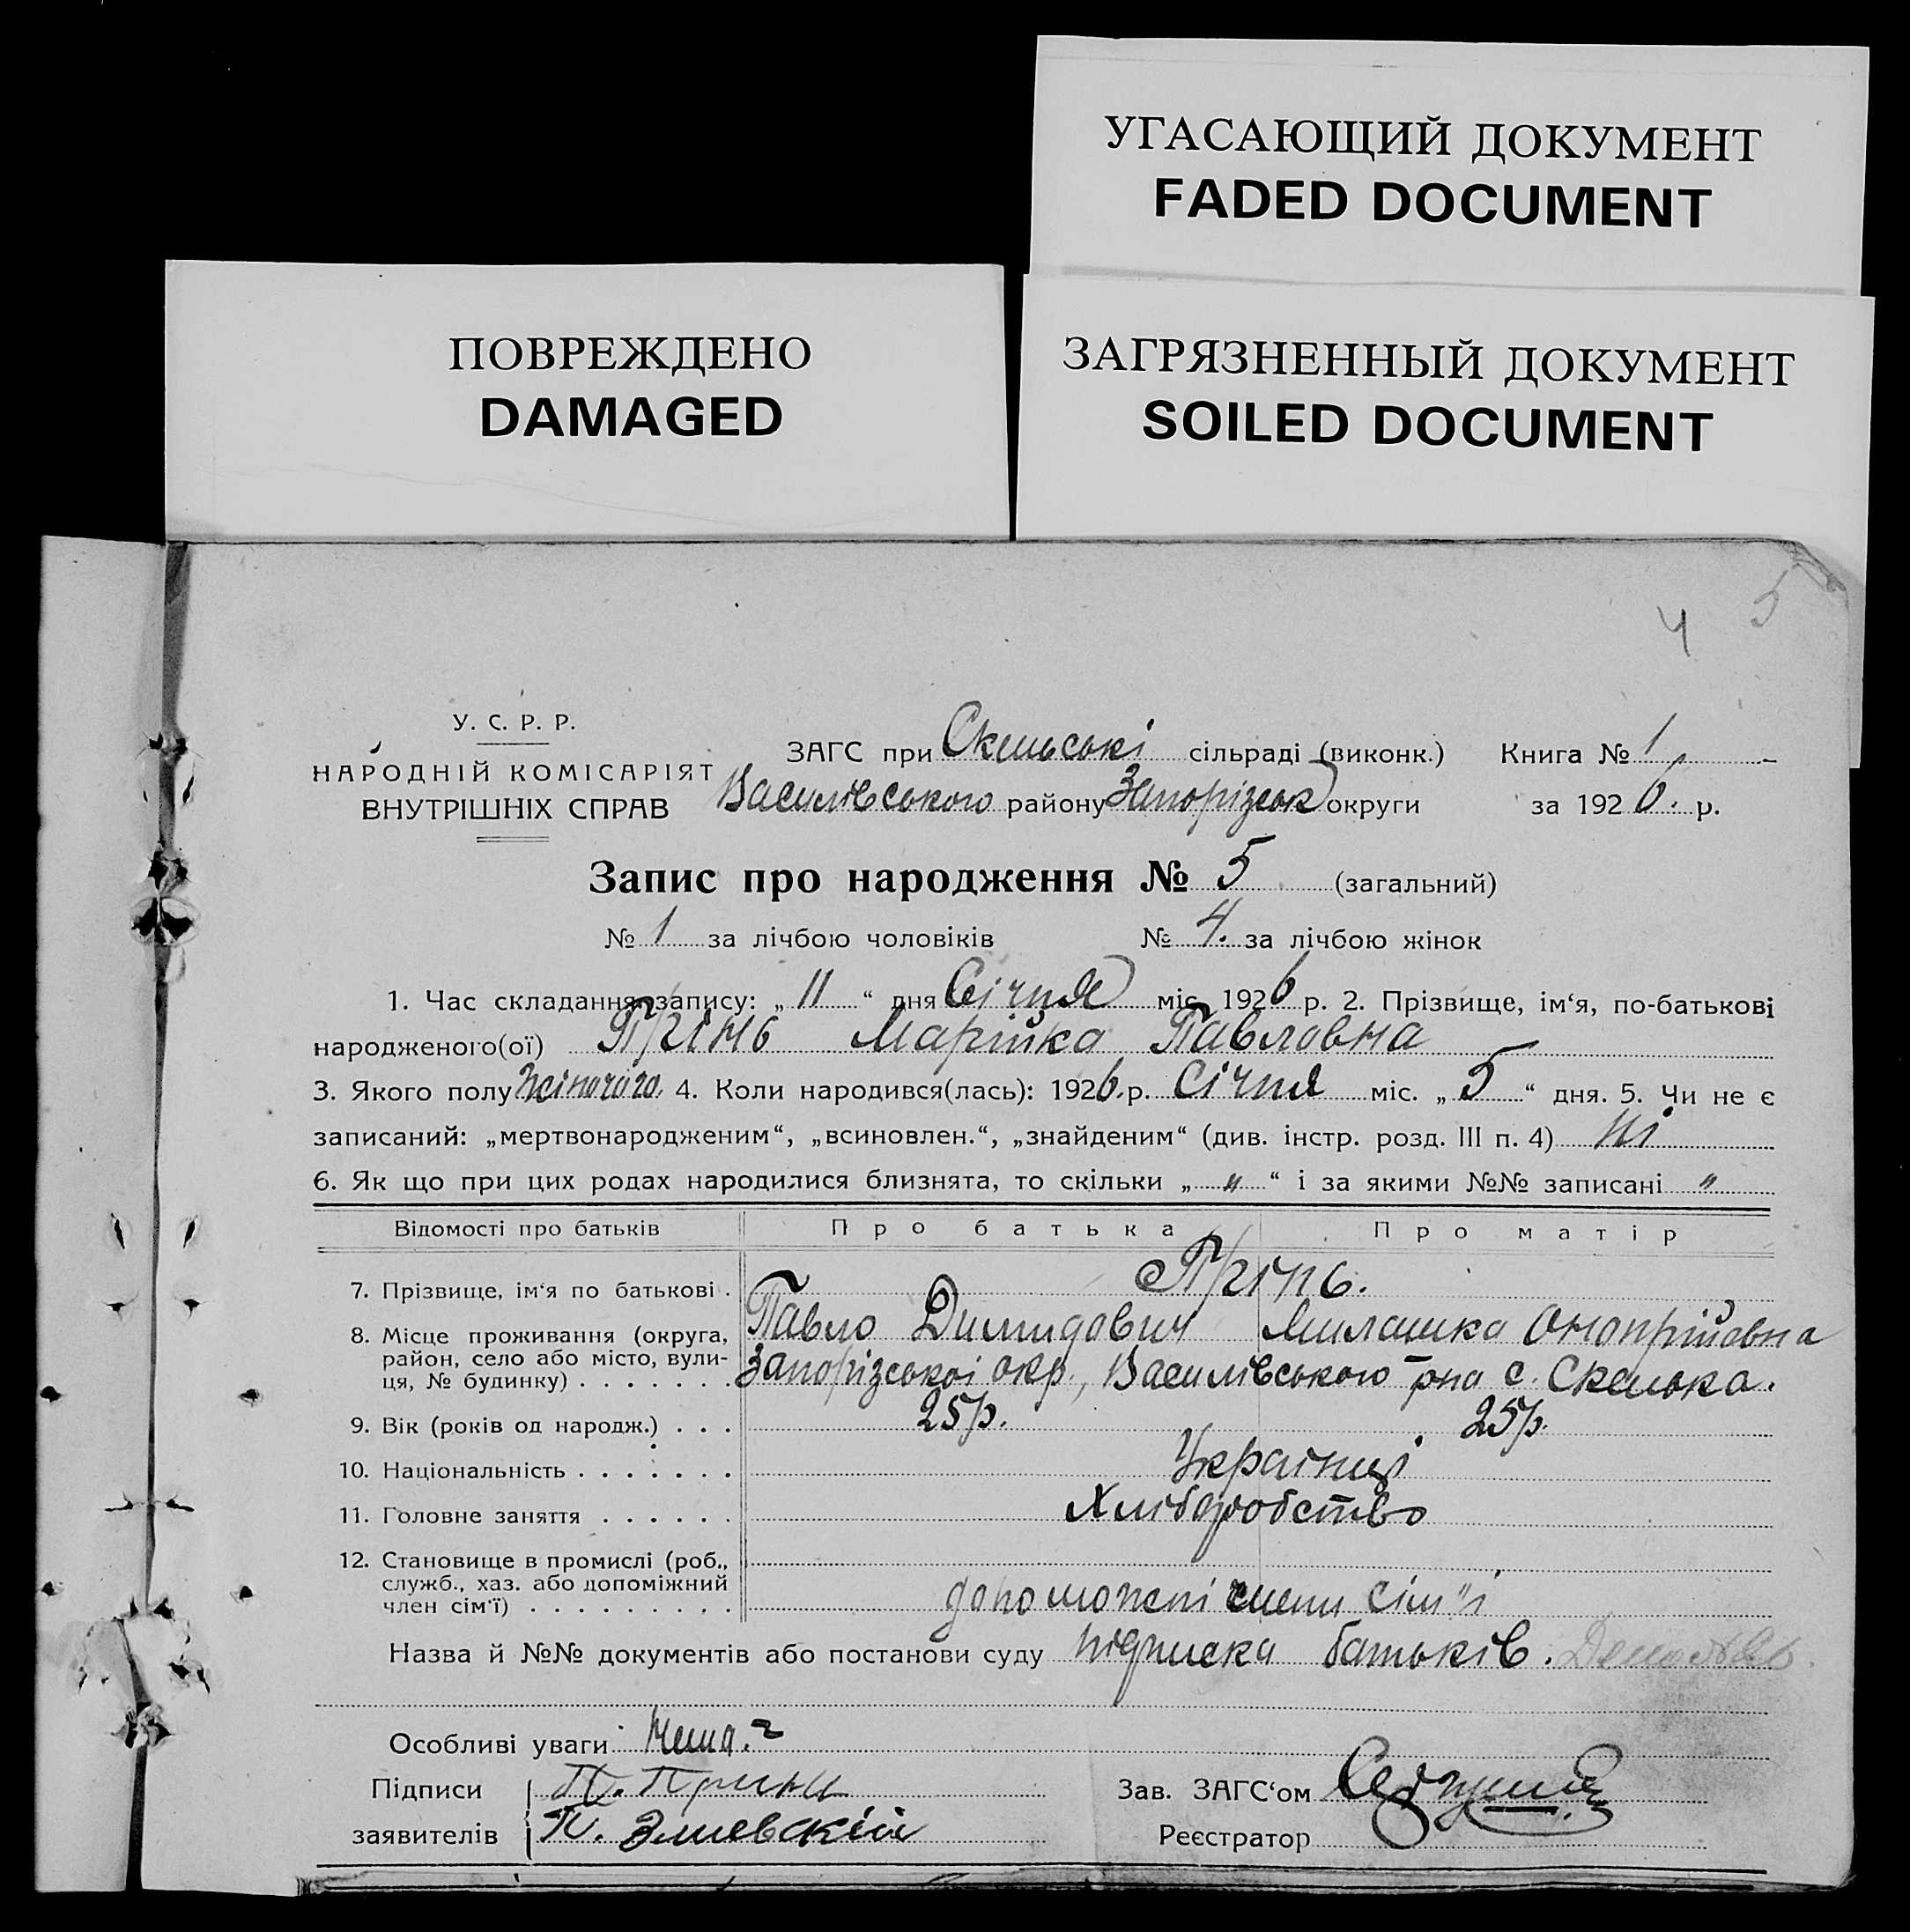 УГАСАЮЩИЙ ДОКУМЕНТ
FADED DOCUMENT
ПОВРЕЖДЕНО
DAMAGED
ЗАГРЯЗНЕННЫЙ ДОКУМЕНТ
SOILED DOCUMENT
4 5
У. С. Р. Р.
НАРОДНІЙ КОМІСАРІЯТ
ВНУТРІШНІХ СПРАВ
ЗАГС при Скельські сільраді (виконк.) Книга № 1
Василівського району Запорізськ округи за 1926. р.
Запис про народження № 5 (загальний)
№ 1 за лічбою чоловіків № 4. за лічбою жінок
1. Час складання запису: „ 11 “ дня Січня міс. 1926 р. 2. Прізвище, ім‘я, по-батькові
народженого(ої) Прінь Марійка Павловна
3. Якого полу жіночого 4. Коли народився(лась): 1926.р. Січня міс. „ 5 “ дня. 5. Чи не є
записаний: „мертвонародженим“, „всиновлен.“, „знайденим“ (див. інстр. розд. III п. 4) ні
6. Як що при цих родах народилися близнята, то скільки „ „ “ і за якими №№ записані „
Відомості про батьків Про батька Про матір
7. Прізвище, ім‘я по батькові . Прінь.
Павло Димидович Милашка Онопрійовна
8. Місце проживання (округа, район, село або місто, вулиця, № будинку) . . . . . . . Запорізської окр., Василівського рна с. Скелька.
9. Вік (років од народж.) . . . 25 р. 25 р.
10. Національність . . . . . . . Українці
11. Головне заняття . . . . . . Хліборобство
12. Становище в промислі (роб., служб., хаз. або допоміжний член сім‘ї) . . . . . . . . . допоможні члени сім"ї
Назва й №№ документів або постанови суду підписка батьків.
Особливі уваги Нема.
Підписи П. Принь
заявителів П.
Зав. ЗАГС‘ом
Реєстратор